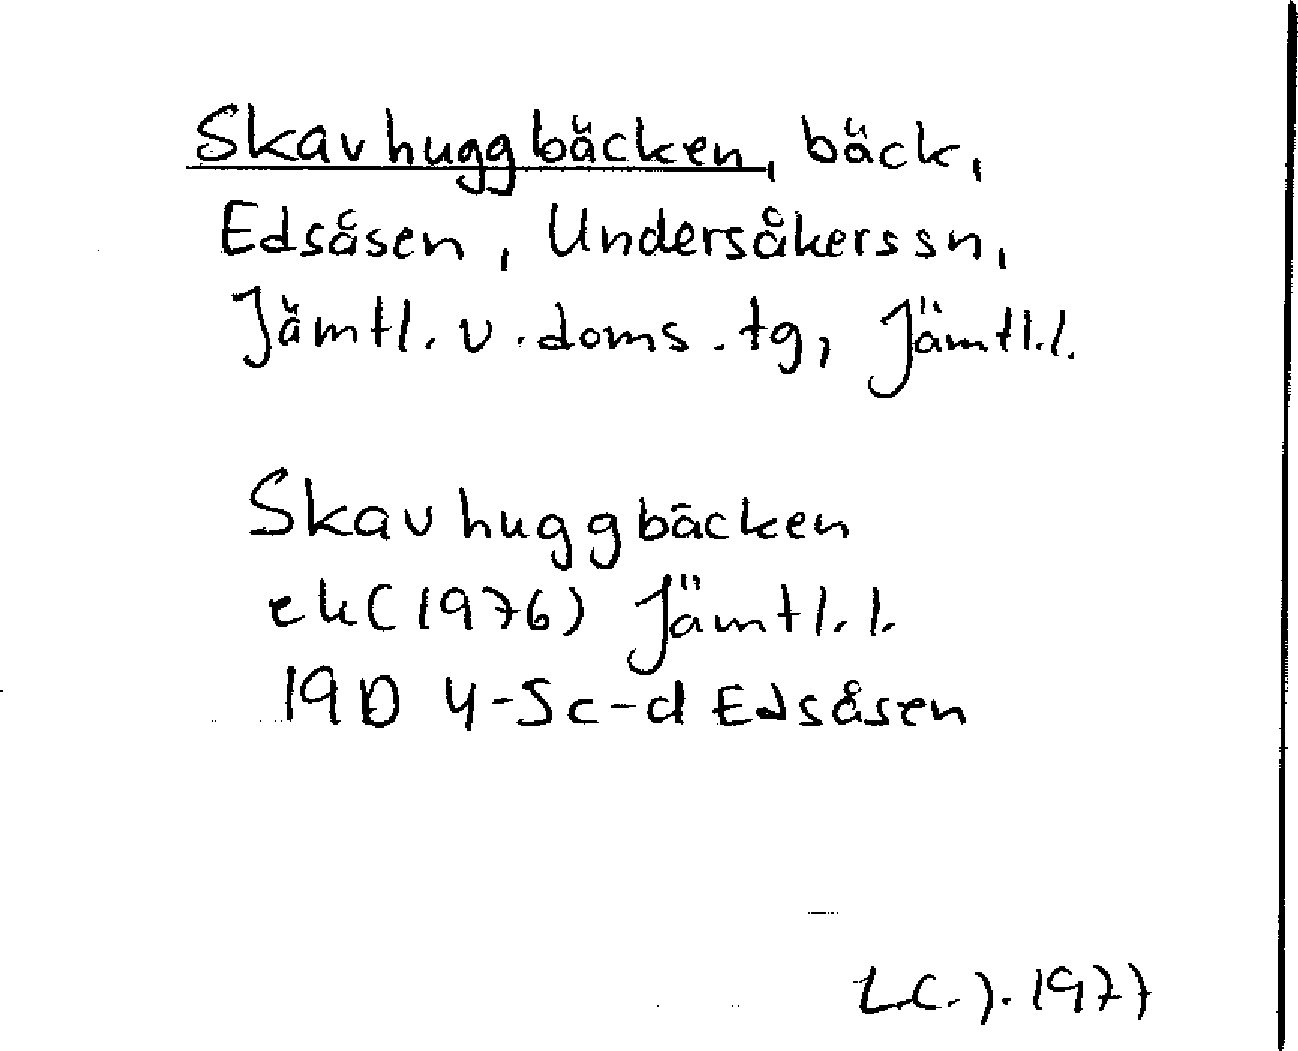 Skavhuggbäcken, bäck,
Edsåsen, Undersåkers sn,
Jämtl. v. doms. tg, Jämtl.l.
Skavhuggbäcken
ek (1976) Jämtl.l.
19D 4-5c-d Edsåsen
L.C.J. 1977